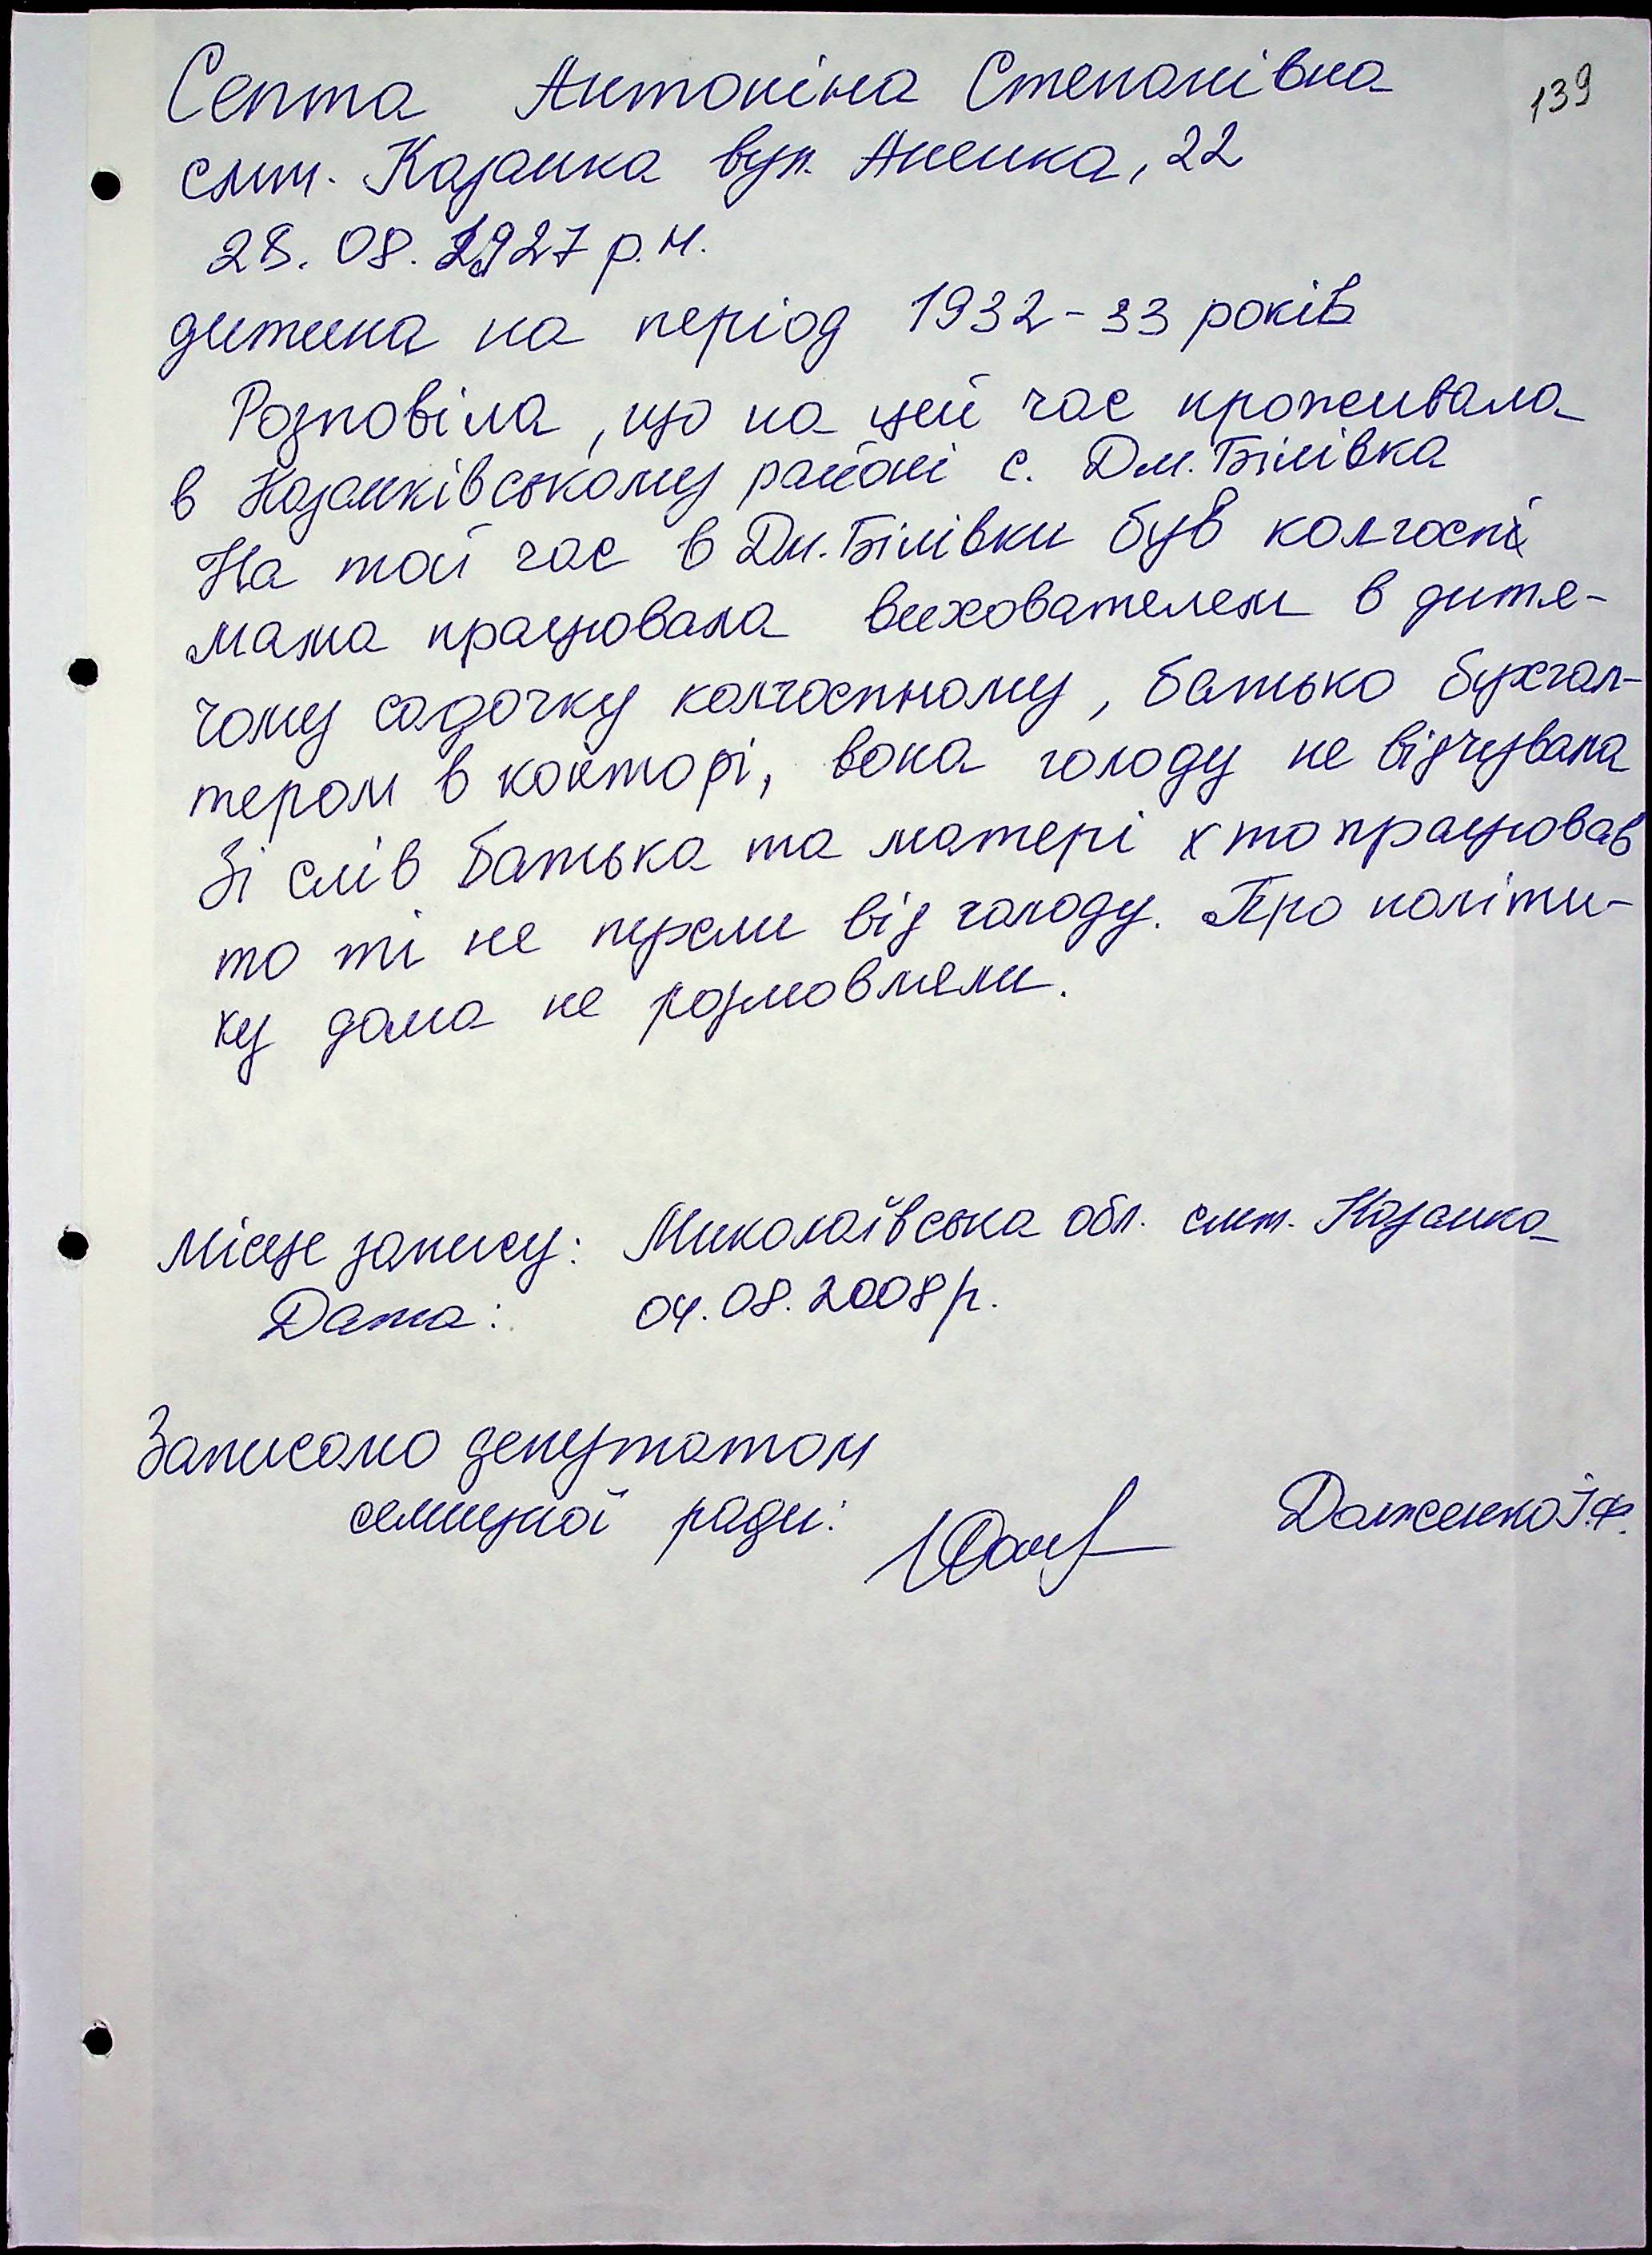 139
Септа Антоніна Степанівна
смт. Казанка вул. Аненка, 22
28. 08. 1927 р.н.
дитина на період 1932-33 років
Розповіла, що на цей час проживала
в Казанківському районі с. Дм. Білівка
На той час в Дм. Білівки був колгосп
мама працювала вихователем в дитя-
чому садочку колгоспному, батько бухгал-
тером в конторі, вона голоду не відчувала
Зі слів батька та матері хто працював
то ті не пухли від голоду. Про політи-
ку дома не розмовляли.
Місце запису: Миколаївська обл. смт. Казанка
Дата: 04.08.2008р.
Записано депутатом
селищної ради:
Долженко І.Ф.